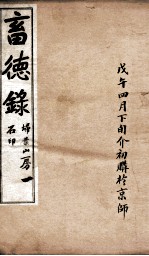 戊午四月下旬介初購於京師
畜德錄
埽葉山房
石印
一